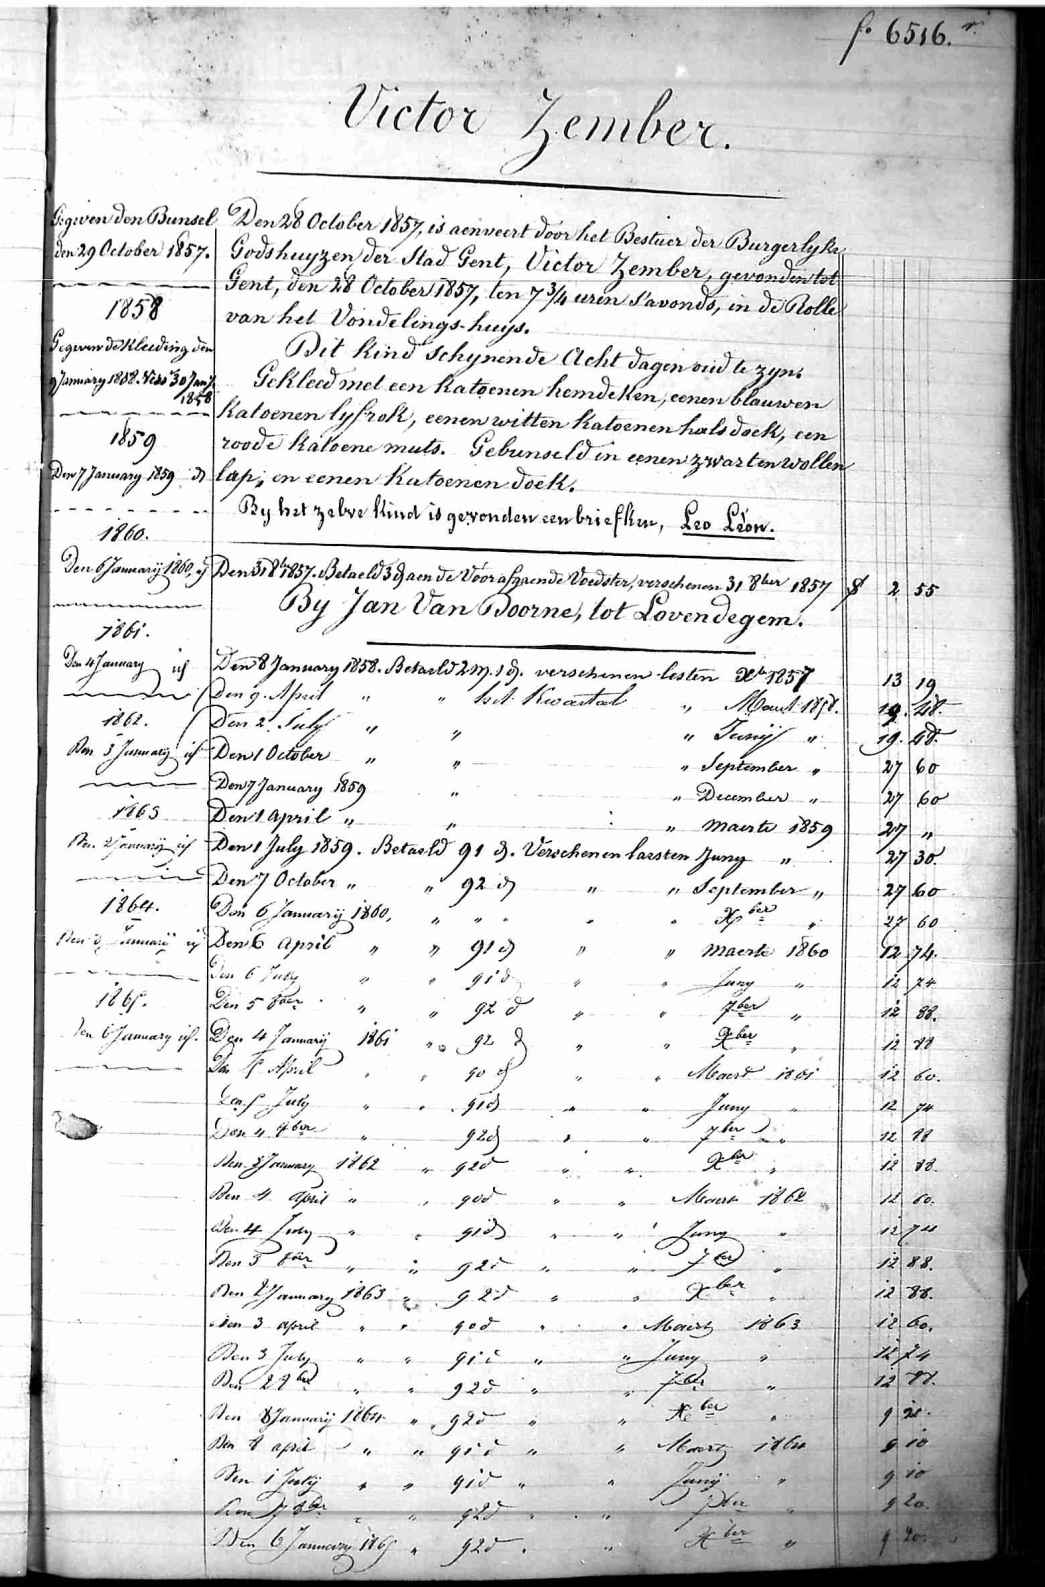 fo 6516. ro
Victor Zember.
Gegeven den Bunsel
den 29 October 1857.
1858
Gegeven de Kleeding den
9 January 1858.
1858
1859
Den 7 January 1859 id
1860.
Den 6 Januarij 1860, id
1861.
Den 4 January id
1862.
Den 3 January id
1863
Den 2 Januarij id
1864.
Den 8 Januarij id
1865.
Den 6 January id.
Den 28 October 1857, is aenveert door het Bestuer der Burgerlyke
Godshuyzen der Stad Gent, Victor Zember, gevonden tot
Gent, den 28 October 1857, ten 7 3/4 uren s'avonds, in de Rolle
van het Vondelings-huys.
Dit kind schynende Acht dagen oud te zyn.
Gekleed met een katoenen hemdeken, eenen blauwen
katoenen lyfrok, eenen witten katoenen halsdoek, een
roode katoene muts. Gebunseld in eenen zwarten wollen
lap, en eenen katoenen doek.
By het zelve kind is gevonden een briefken, Leo Léon.
Den 31 8br 1857. Betaeld 3 d aen de Voorafgaende Voedster, verschenen 31 8ber 1857 2 55
By Jan Van Doorne, tot Lovendegem.
Den 8 January 1858. Betaeld 2 m. 1 d. verschenen lesten Xbr 1857 13 19
Den 9 April " " het Kwartal " Maert 1858. 19. 48.
Den 2 July " " " Junij " 19. 48.
Den 1 October " " " September " 27 60
Den 7 January 1859 " " December " 27 60
Den 1 April " " " maerte 1859 27 "
Den 1 July 1859. Betaeld 91 d. Verschenen laesten Juny " 27 30.
Den 7 October " " 92 d " " September " 27 60
Den 6 Januarij 1860, " " " " " Xber " 27 60
Den 6 April " " 91 d " " maerte 1860 12 74.
Den 6 July " " 91 d " " Juny " 12 74
Den 5 8ber " " 92 d " " 7ber " 12 88.
Den 4 Januarij 1861 " 92 d " " Xber " 12 88
Den 5 April " " 90 d " " Maert 1861 12 60.
Den 5 July " " 91 d " " Juny " 12 74
Den 4 8ber " 92 d " " 7ber " 12 88
Den 3 January 1862 " 92 d " " Xber " 12 88.
Den 4 april " " 90 d " " Maert 1862 12 60.
Den 4 July " " 91 d " " Juny " 12 74
Den 3 8ber " " 92 d " " 7ber " 12 88.
Den 2 January 1863 " 92 d " " Xber " 12 88.
Den 3 april " " 90 d " " Maert 1863 12 60.
Den 3 July " " 91 d " " Juny " 12 74
Den 2 8ber " " 92 d " " 7ber " 12 88.
Den 8 Januarij 1864 " 92 d " " Xber " 9 20.
Den 8 april " " 91 d " " Maert 1864 9 10
Den 1 July " " 91 d " " Junij " 9 10
Den 7 8ber " " 92 d " " 7ber " 9 20.
Den 6 January 1865 " 92 d " " Xber " 9 20.